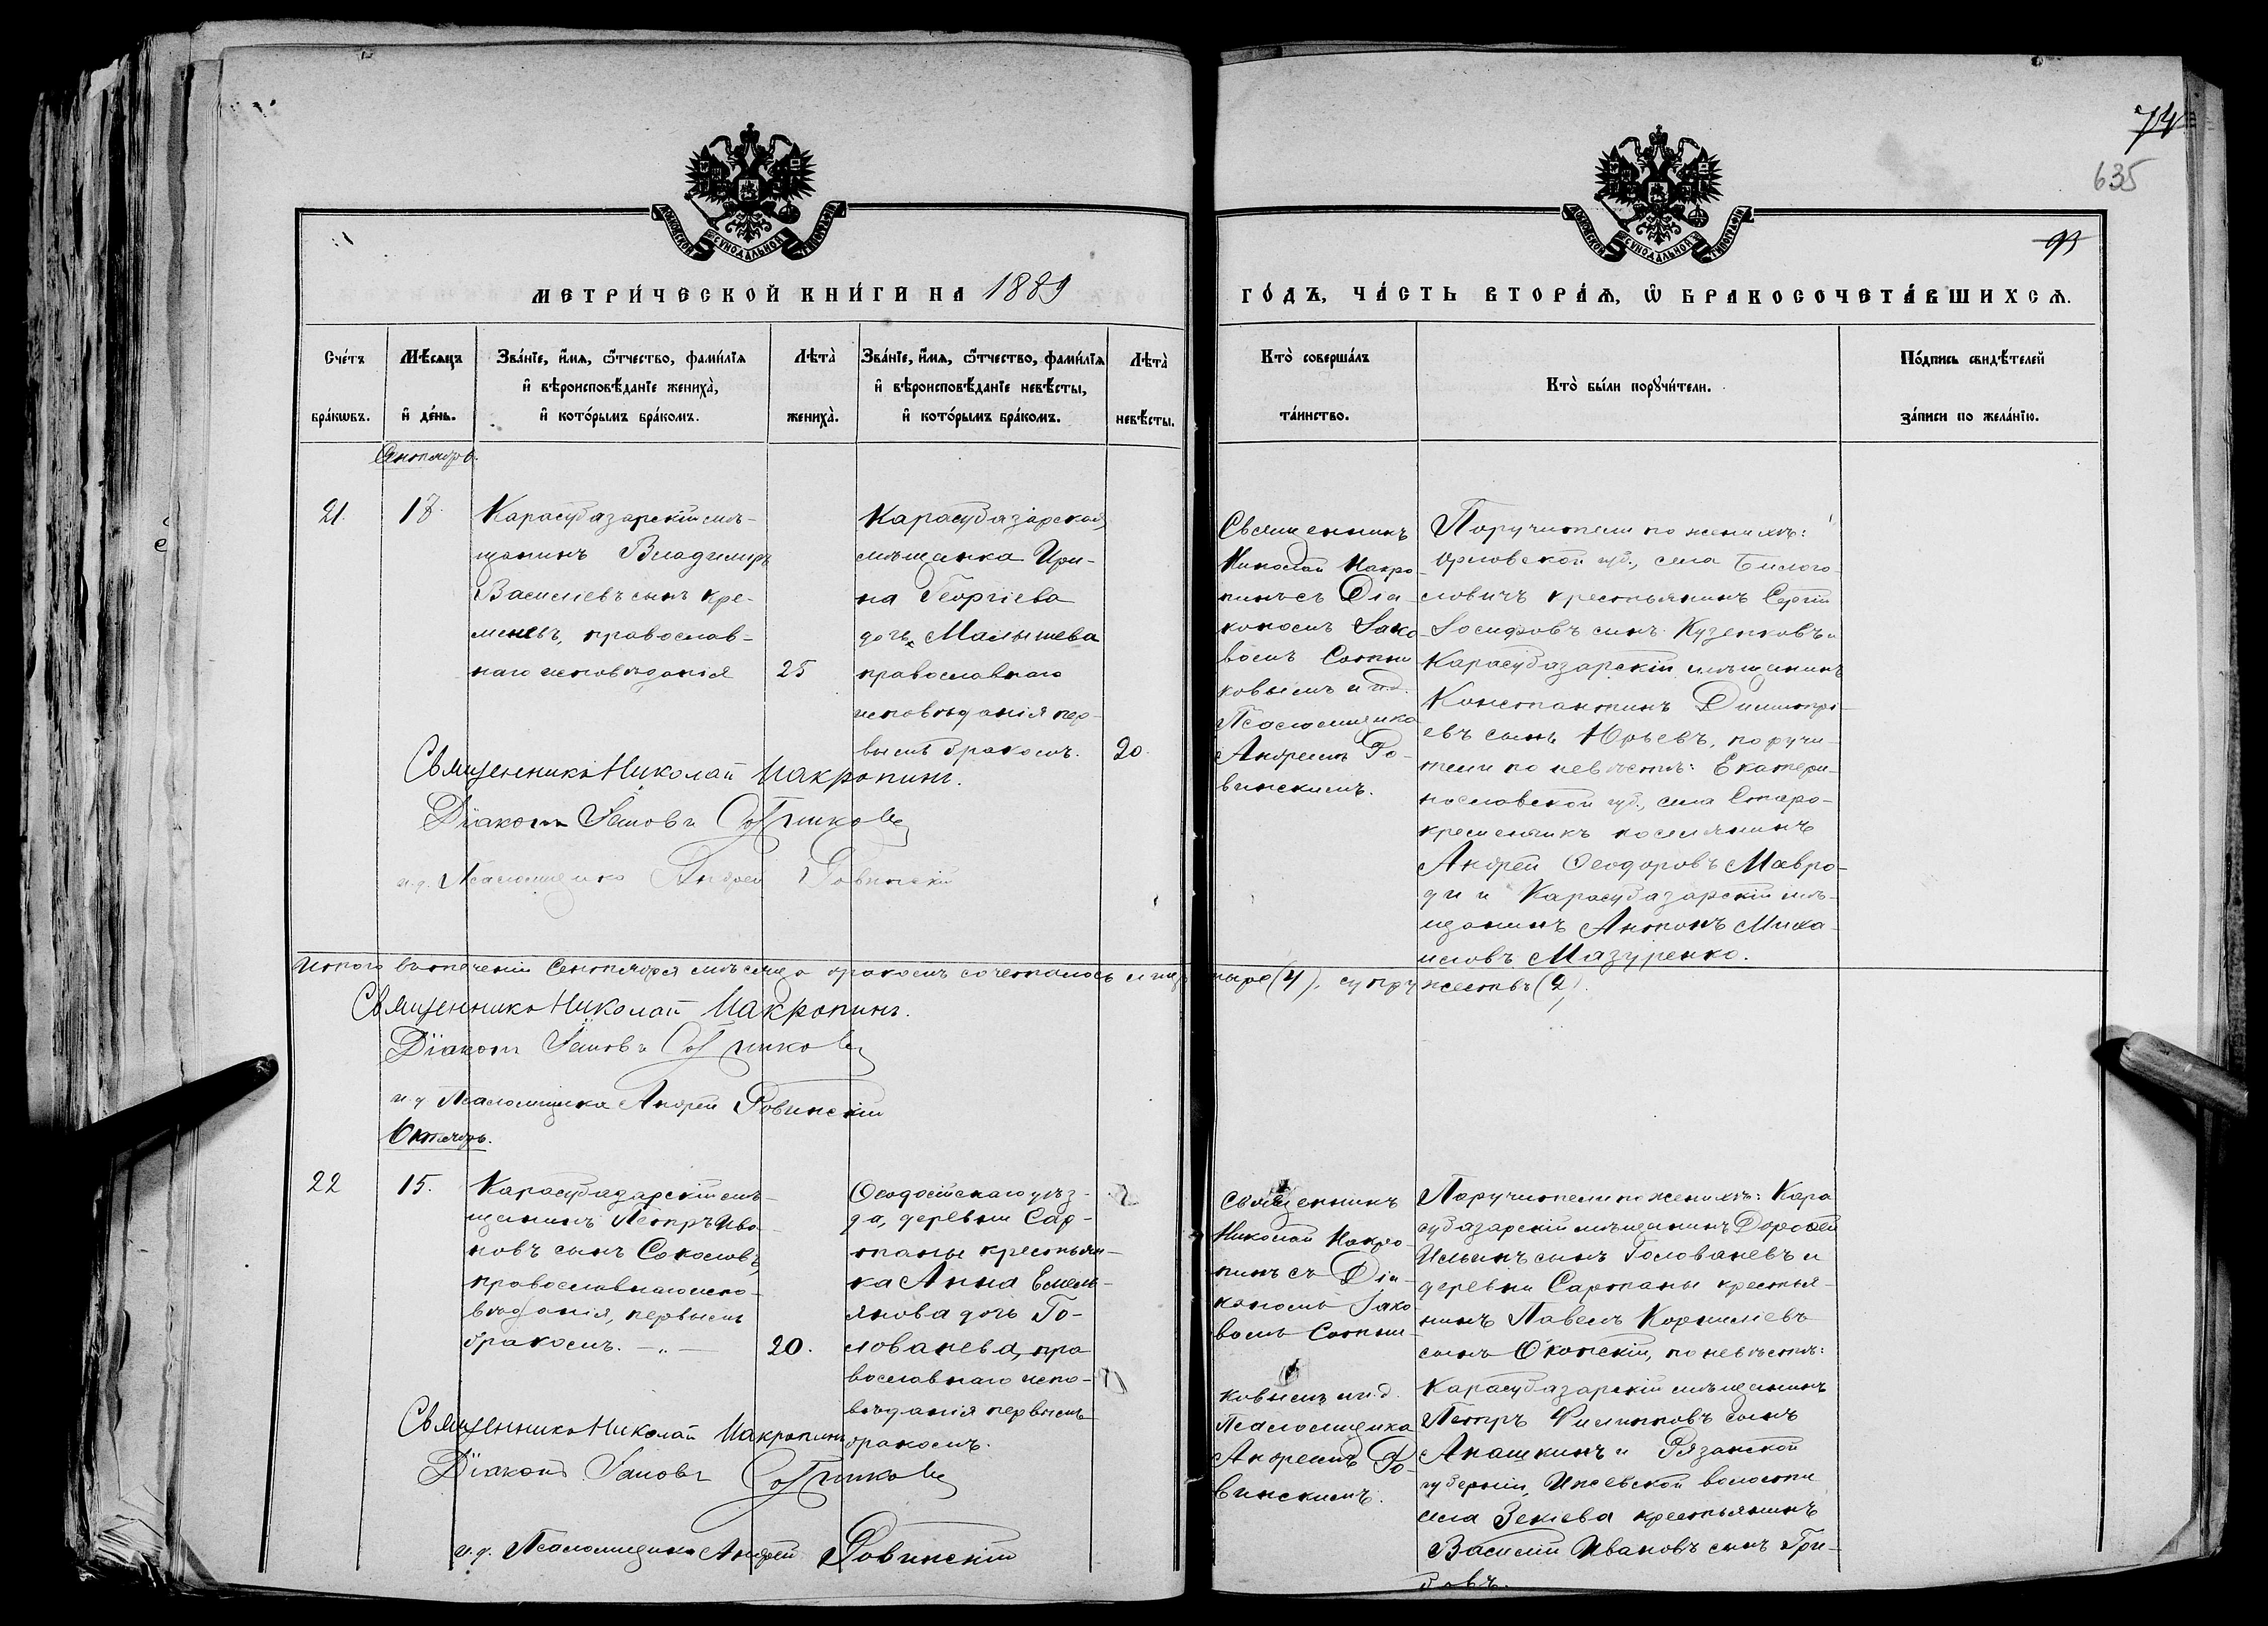 74
635
МОСКОВСКОЙ СѴНОДАЛЬНОЙ ТИПОГРАФІИ
МОСКОВСКОЙ СѴНОДАЛЬНОЙ ТИПОГРАФІИ
МЕТРИ́ЧЕСКОЙ КНИ́ГИ НА 1889
ГО́ДЪ, ЧА́СТЬ ВТОРА́Ѧ, Ѡ҆ БРАКОСОЧЕТА́ВШИХСѦ.
Сче́тъ
бра́кѡвъ.
Мѣ́сяцъ
и҆ де́нь.
Зва́нїе, и҆́мя, ѻ҆́тчество, фами́лїя
и҆ вѣроисповѣ́данїе жениха̀,
и҆ кото́рымъ бра́комъ.
Лѣта̀
жениха̀.
Зва́нїе, и҆́мя, ѻ҆́тчество, фами́лїя
и҆ вѣроисповѣ́данїе невѣ́сты,
и҆ кото́рымъ бра́комъ.
Лѣта̀
невѣ́сты.
Кто̀ соверша́лъ
та́инство.
Кто̀ бы́ли порꙋчи́тели.
По́дпись свидѣ́телей
за́писи по жела́нїю.
Сентябрь.
21.
18.
Карасубазарскій мѣ-
щанинъ Владиміръ
Васильевъ сынъ Кре-
меневъ, православ-
наго исповѣданія
25
Карасубазарская
мѣщанка Ири-
на Георгіева
дочь Малышева
православнаго
исповѣданія пер-
вымъ бракомъ.
20.
Священникъ
Николай Макро-
пинъ съ Діа-
кономъ Іако-
вомъ Сотни-
ковымъ и и.д.
Псаломщика
Андреемъ Ро-
винскимъ.
Поручители по женихѣ:
Орловской губ., села
словичъ крестьянинъ Сергій
Іосифовъ сынъ Кузенковъ и
Карасубазарскій мѣщанинъ
Константинъ Димитрі-
евъ сынъ Юрьевъ, поручи-
тели по невѣстѣ: Екатери-
нославской губ., села Старо-
поселянинъ
Андрей Ѳеодоровъ Мавро-
ди и Карасубазарскій мѣ-
щанинъ Антонъ Миха-
иловъ Мазуренко.
Священникъ Николай Макропинъ.
Діаконъ Іаковъ Сотниковъ
и.д. Псаломщика Андрей Ровинскій
Итого въ теченіи Сентября мѣсяца бракомъ сочеталось четыре (4), супружествъ (2).
Священникъ Николай Макропинъ.
Діаконъ Іаковъ Сотниковъ
и.д Псаломщика Андрей Ровинскій
Октябрь.
22
15.
Карасубазарскій мѣ-
щанинъ Петръ Ива-
новъ сынъ Соколовъ,
православнаго испо-
вѣданія, первымъ
бракомъ. — „ —
20.
Ѳеодосійскаго уѣз-
да, деревни Сар-
таны крестьян-
ка Анна Емель-
янова дочь Го-
лованева, пра
вославнаго испо-
вѣданія первымъ
бракомъ.
Священникъ
Николай Макро-
пинъ съ Діа-
кономъ Іако
вомъ Сотни-
ковымъ и и.д.
Псаломщика
Андреемъ Ро-
винскимъ.
Поручители по женихѣ: Кара
субазарскій мѣщанинъ Дороѳей
Ильинъ сынъ Голованевъ и
деревни Сартаны крестья-
нинъ Павелъ Корниліевъ
сынъ Оконскій, по невѣстѣ:
Карасубазарскій мѣщанинъ
Петръ Филипповъ сынъ
Анашкинъ и Рязанской
губерніи, волости
села крестьянинъ
Василій Ивановъ сынъ Гри-
бовъ.
Священникъ Николай Макропинъ
Діаконъ Іаковъ Сотниковъ
и.д. Псаломщика Андрей Ровинскій